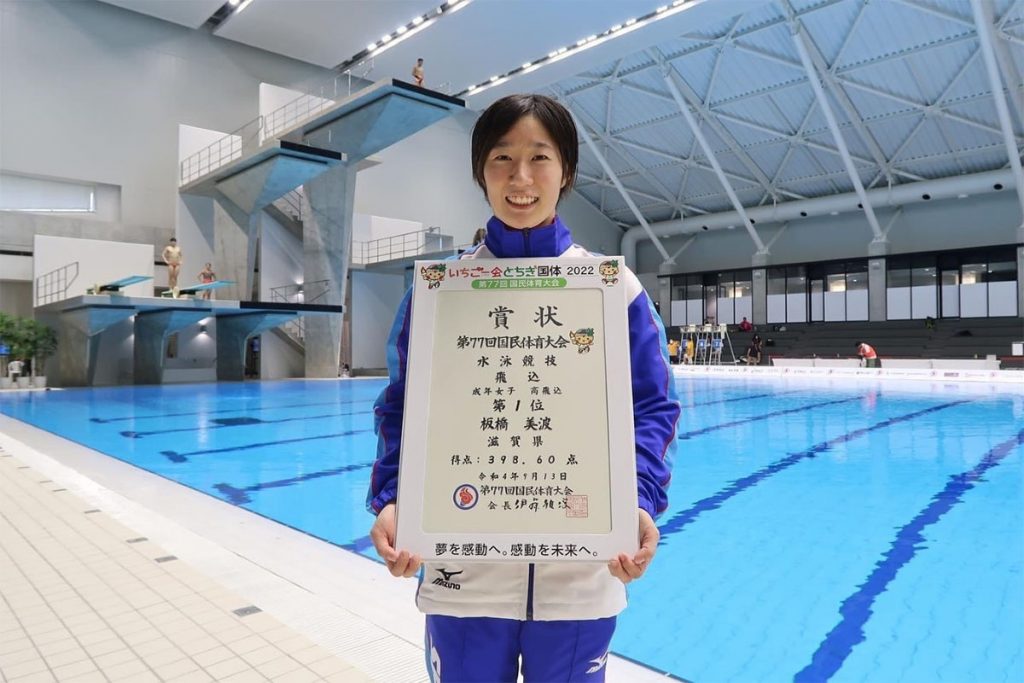 いちご一会とちぎ国体 2022
第77回国民体育大会
賞状
第77回国民体育大会
水泳競技
飛込
成年女子 高飛込
第1位
板橋 美波
滋賀県
得点：398.60点
令和4年9月13日
第77回国民体育大会
会長
夢を感動へ。感動を未来へ。
MIZUNO